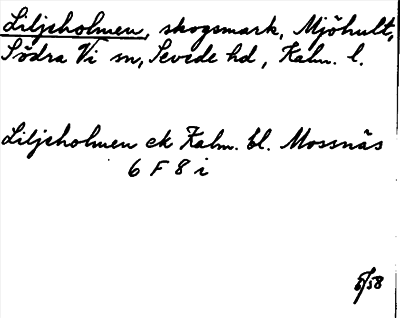 Liljeholmen, skogsmark, Mjöhult,
Södra Vi sn, Sevede hd, Kalm. l.
Liljeholmen ek Kalm. bl. Mossnäs
6 F 8 i
5/58